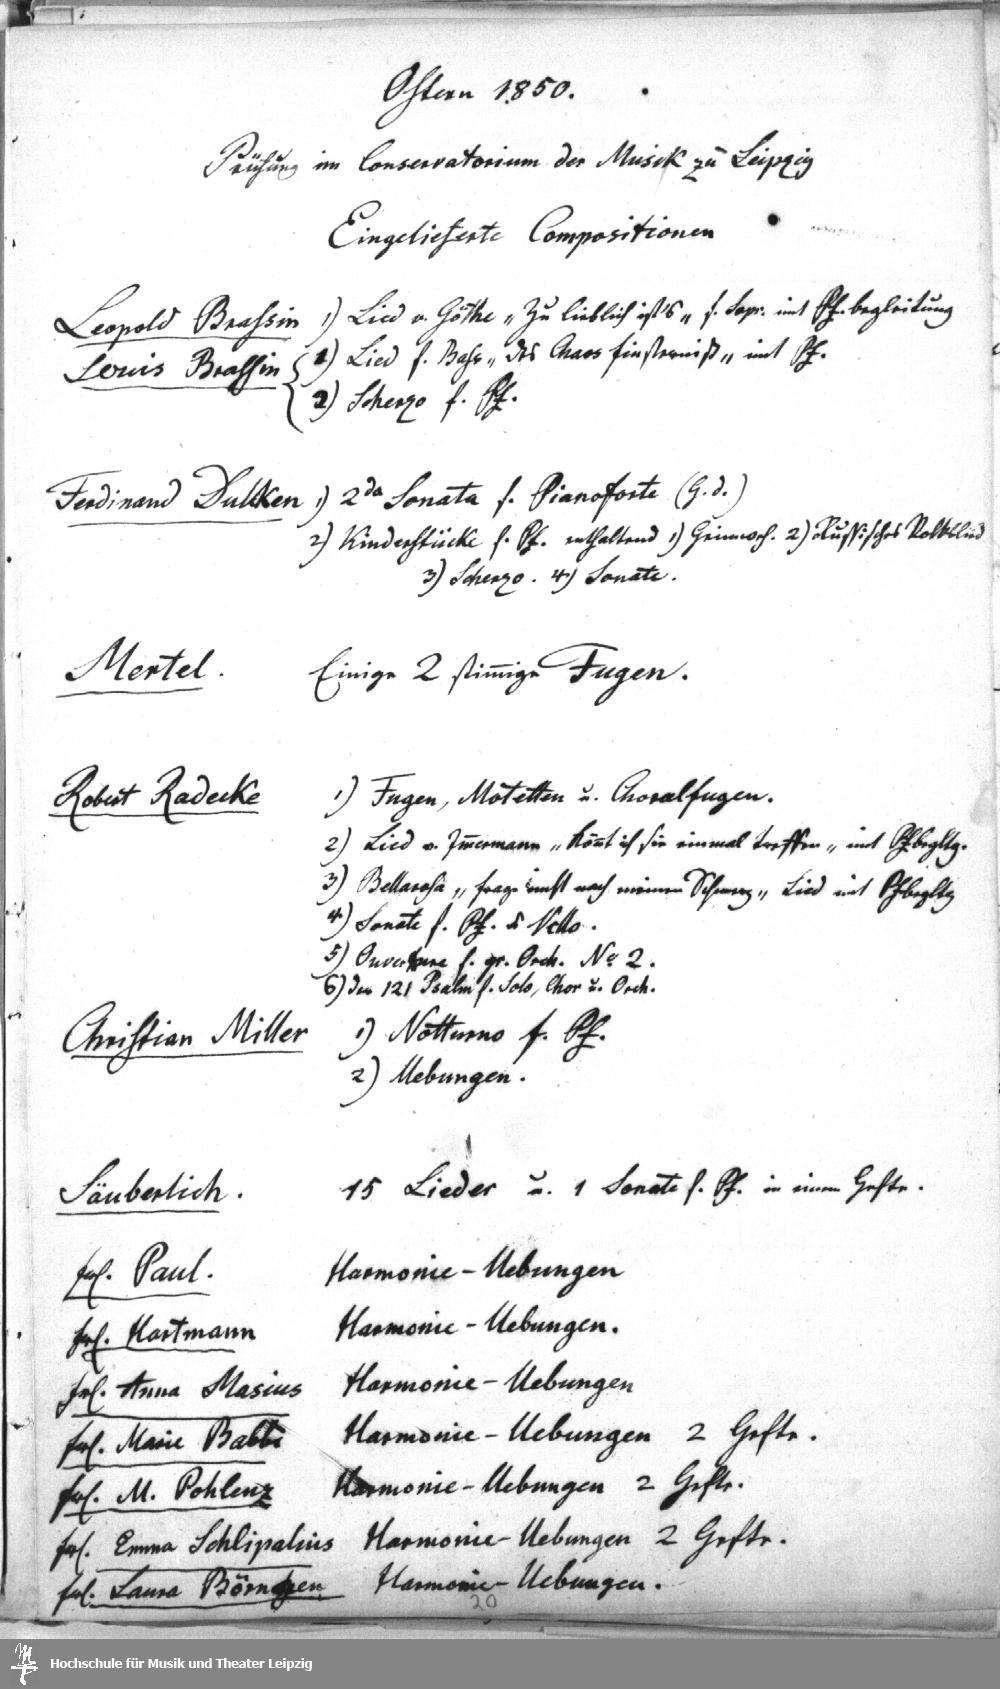 Ostern 1850.
Prüfung im Conservatorium der Musik zu Leipzig
Eingelieferte Compositionen
Leopold Brassin 1) Lied v. Göthe „Zu lieblich ist's„ f. Sopr. mit Pf. begleitung
Louis Brassin 1) Lied f. Bass „des Chaos finsterniss„ mit Pf.
2) Scherzo f. Pf.
Ferdinand Dulken 1) 2da Sonata f. Pianoforte (G. d.)
2) Kinderstücke f. Pf. enthaltend 1) 2) Russisches Volkslied
3) Scherzo. 4) Sonate.
Mertel. Einige 2 stimige Fugen.
Robert Radecke 1) Fugen, Motetten u. Choralfugen.
2) Lied v. Imermann „Könt ich sie einmal treffen„ mit Pfbegltg.
3) Bellarosa „frage nicht nach meinem Schmerz„ Lied mit Pfbegltg
4) Sonate f. Pf. & Vcllo.
5) Ouverture f. gr. Orch. No 2.
6) Der 121 Psalm f. Solo, Chor u. Orch.
Christian Miller 1) Notturno f. Pf.
2) Uebungen.
Säuberlich. 15 Lieder u. 1 Sonate f. Pf. in einem Hefte.
frl. Paul. Harmonie-Uebungen
frl. Hartmann Harmonie-Uebungen.
frl. Anna Masius Harmonie-Uebungen
frl. Marie Babbi Harmonie-Uebungen 2 Hefte.
frl. M. Pohlenz Harmonie-Uebungen 2 Hefte.
frl. Emma Schlipalius Harmonie-Uebungen 2 Hefte.
frl. Laura Harmonie-Uebungen.
20
Hochschule für Musik und Theater Leipzig